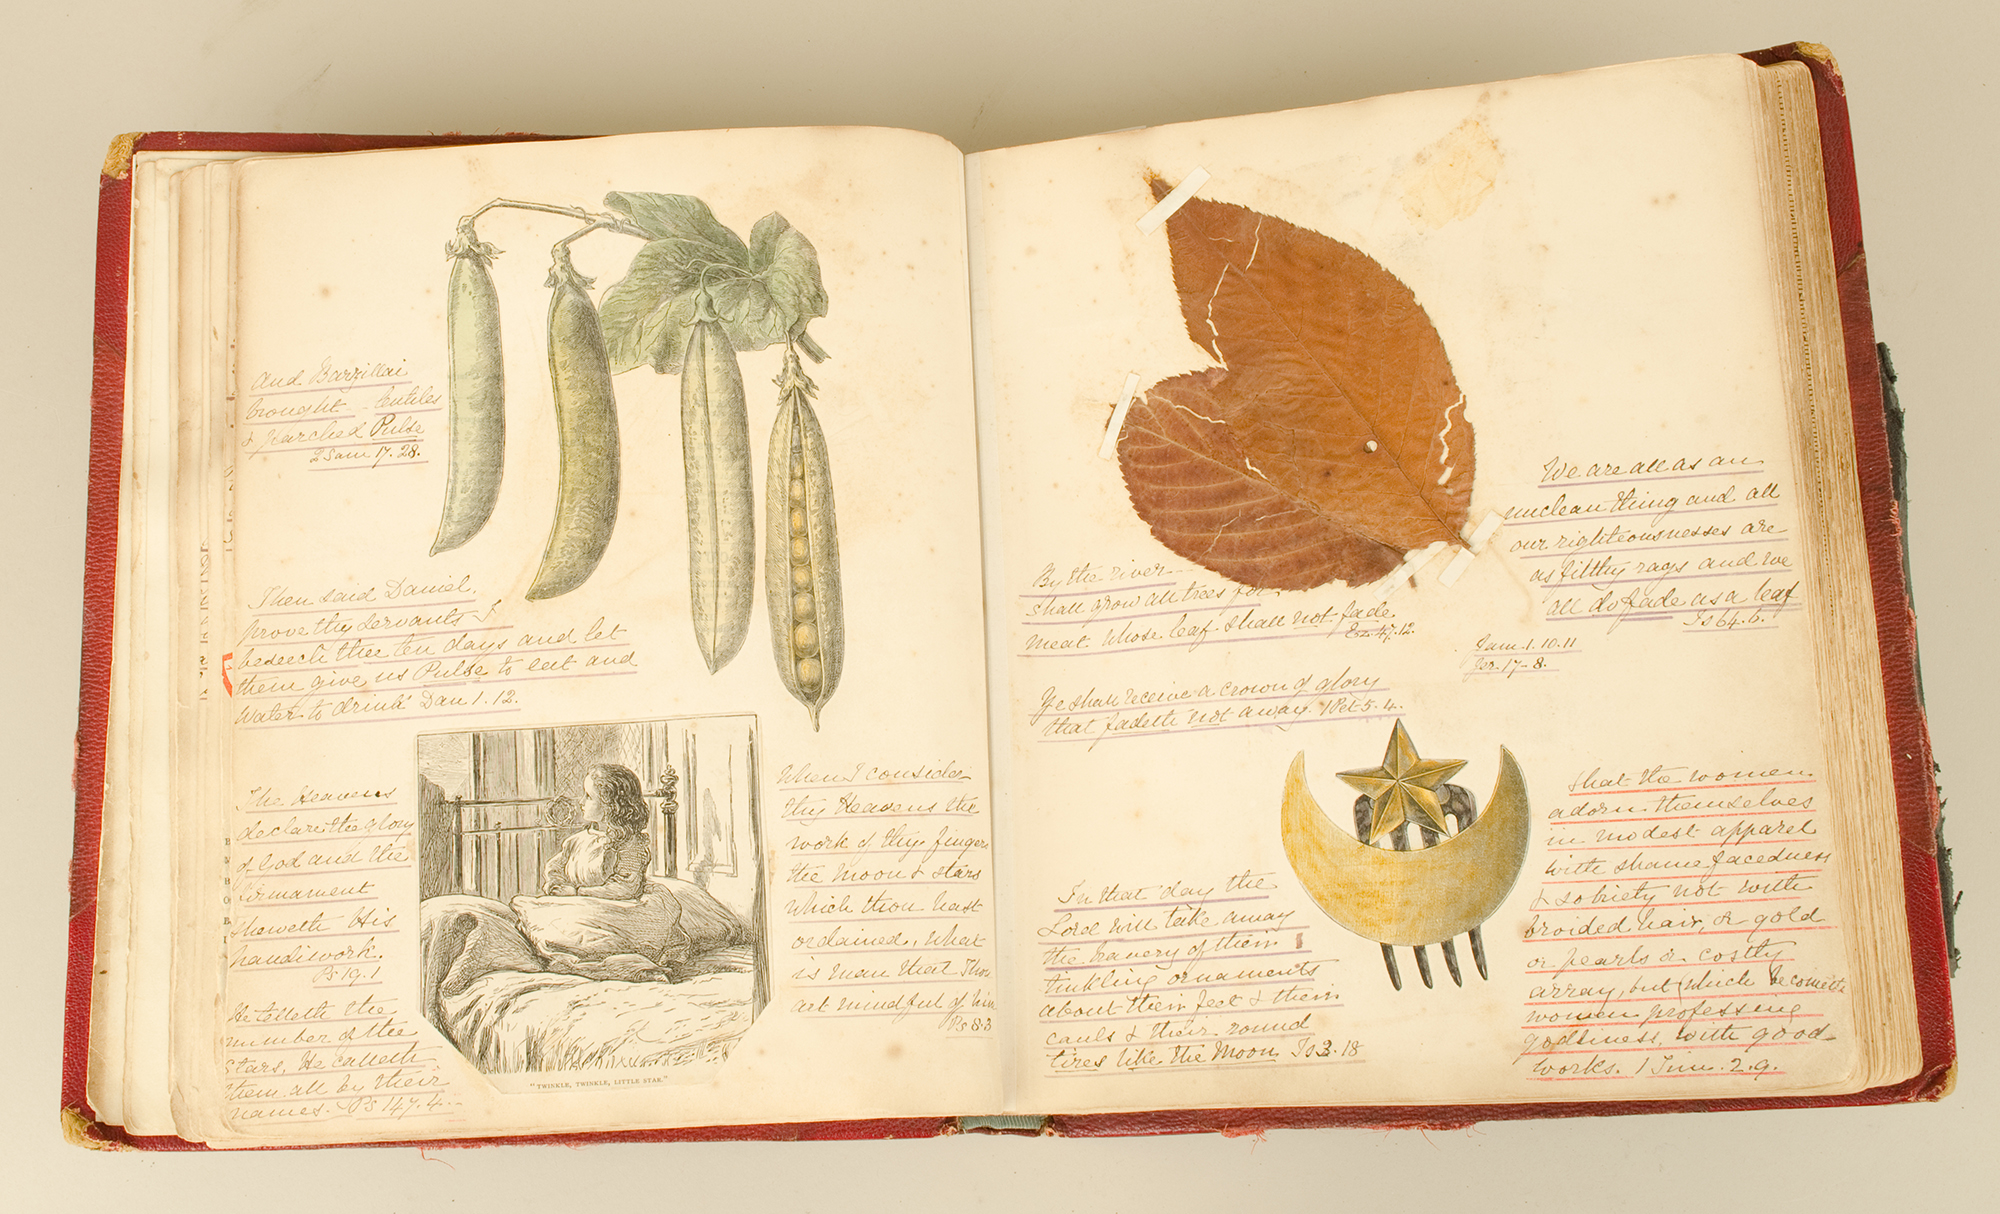 And Barzillai
brought - lentiles
& parched Pulse
2 Sam 17. 28.
Then said Daniel,
prove thy servants I
beseech thee ten days and let
them give us Pulse to eat and
Water to drink" Dan 1. 12.
The Heavens
declare the glory
of God and the
firmament
sheweth His
handiwork.
Ps 19. 1
He telleth the
number of the
stars, He calleth
them all by their
names. Ps 147. 4.
"TWINKLE, TWINKLE, LITTLE STAR."
When I consider
thy Heavens the
work of thy fingers
the Moon & stars
which thou hast
ordained, what
is man that Thou
art mindful of him
Ps 8. 3
By the river
shall grow all trees for
meat whose leaf shall not fade.
Ez. 47. 12.
We are all as an
unclean thing and all
our righteousnesses are
as filthy rags and we
all do fade as a leaf
Is 64. 6.
Jam 1. 10. 11
Jer. 17 - 8.
Ye shall receive a crown of glory
that fadeth not away. 1 Pet 5. 4.
In that day the
Lord will take away
the bravery of their
tinkling ornaments
about their feet & their
cauls & their round
tires like the Moon Is 3. 18
that the women
adorn themselves
in modest apparel
with shamefacedness
& sobriety not with
broided hair, or gold
or pearls or costly
array, but (which becometh
women professing
godliness, with good
works. 1 Tim. 2. 9.